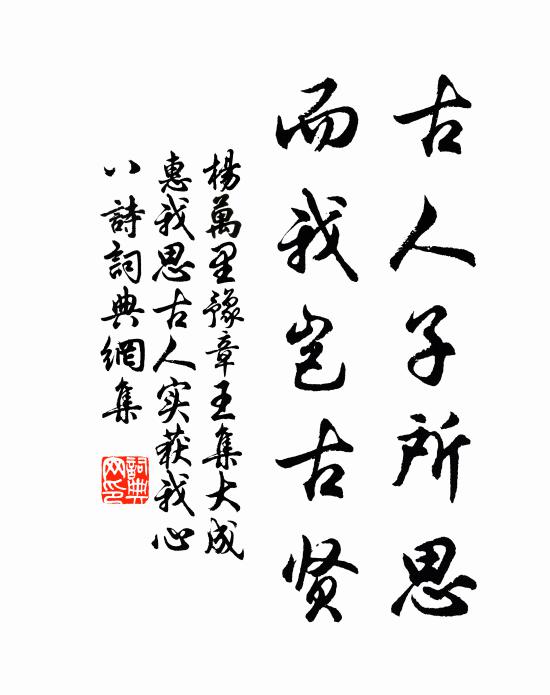 古人子所思
而我岂古贤
楊萬里豫章王集大成
惠我思古人实获我心
八詩詞典網集
詞典
网印